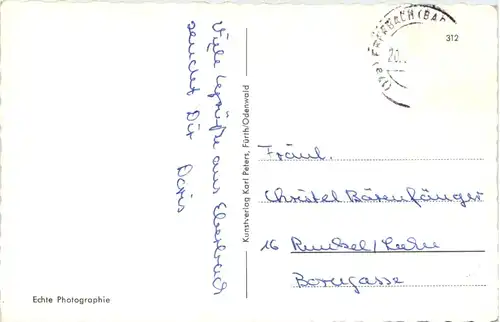 Viele Grüße aus Eberbach
sendet Dir Doris
Echte Photographie
Kunstverlag Karl Peters, Fürth/Odenwald
EBERBACH (BAD
20.
312
Fräul.
Christel Bärenfänger
16 Runkel/Lahn
Borngasse